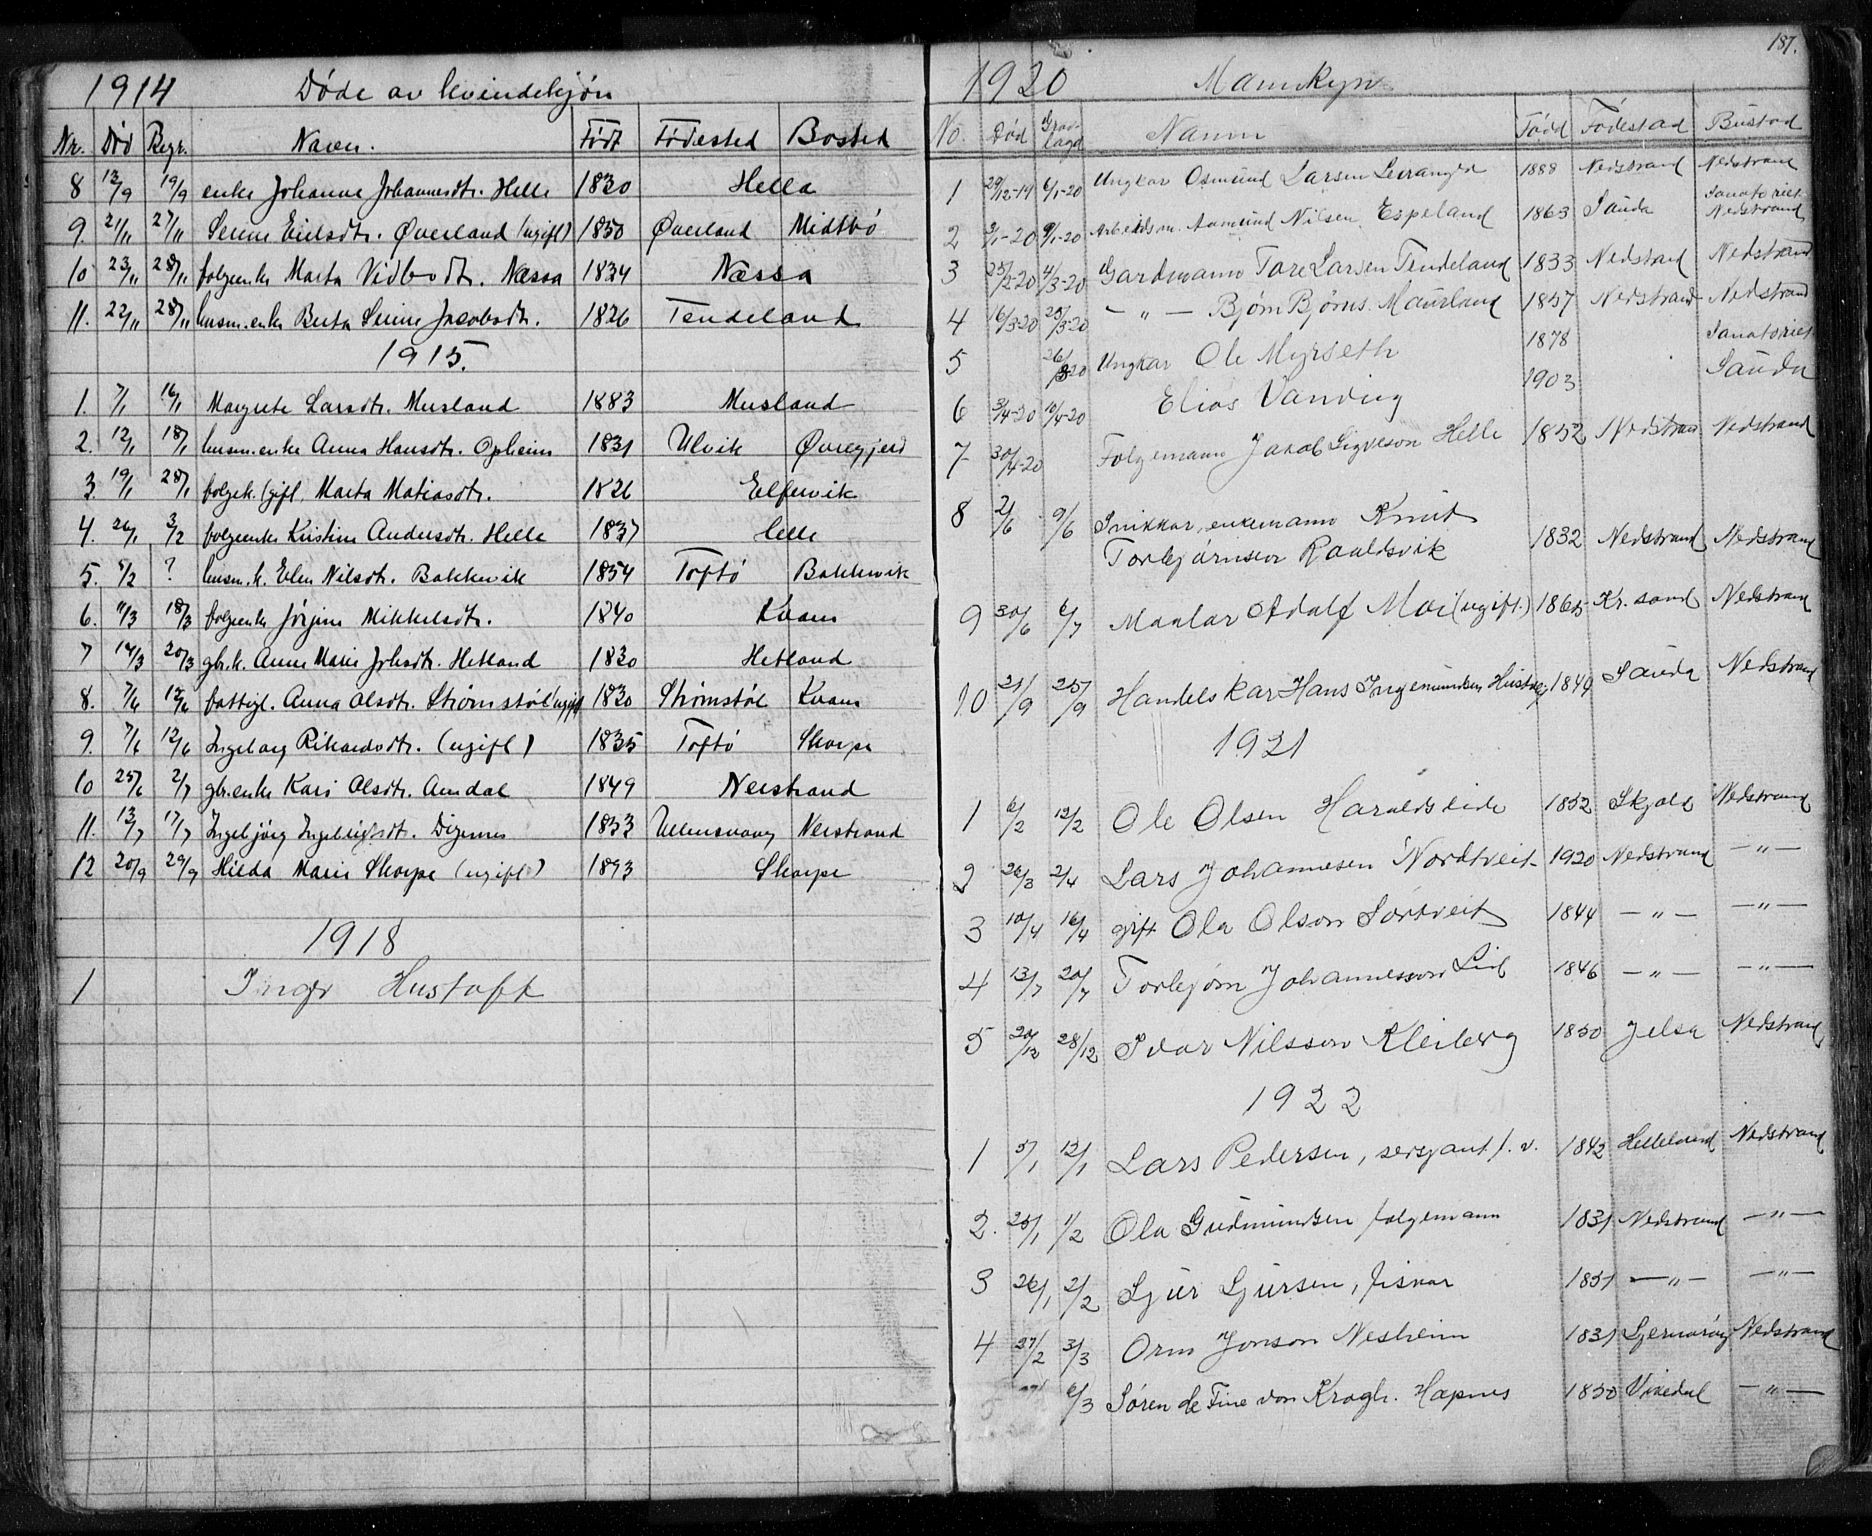 1914 Døde av kvindekjøn
Nr. Død Begr. Navn. Født Fødested Bosted
8 13/9 19/9 enke Johanne Johannesdtr. Helle 1830 Hella
9. 21/11 27/11 Serine Eielsdtr. Øverland (ugift) 1850 Øverland Midtbø
10 23/11 28/11 folgeenke Marta Vidbodtr. Næssa 1834 Næssa
11. 22/11 28/11 husm.enke Berta Serine Jacobsdtr. 1826 Tendeland
1915.
1. 7/1 16/1 Margrete Larsdtr. Musland 1883 Musland
2. 12/1 18/1 husm.enke Anna Hansdtr. Opheim 1831 Ulvik Øvregjerd
3. 19/1 28/1 folgek. (gift) Marta Matiasdtr. 1826 Elfervik
4. 26/1 3/2 folgeenke Kristine Andersdtr. Helle 1837 Helle
5. 5/2 ? husm.k. Elen Nilsdtr. Bakkevik 1854 Toftø Bakkevik
6. 11/3 18/3 folgeenke Jørgine Mikkelsdtr. 1840 Kvam
7 14/3 20/3 gbr.k. Anne Marie Johsdtr. Hetland 1830 Hetland
8. 7/4 12/4 fattigl. Anna Olsdtr. Strømstøl (ugift) 1830 Strømstøl Kvam
9. 7/6 12/6 Ingeborg Rikardsdtr. (ugift) 1835 Toftø Skorpe
10 25/6 2/7 gbr.enke Kari Olsdtr. Amdal 1849 Nerstrand
11. 13/7 17/7 Ingebjørg Ingebrigtsdt. Digernes 1833 Ullensvang Nerstrand
12 20/9 29/9 Hilda Marie Skorpe (ugift) 1893 Skorpe
1918
1 Inger Hustoft
187.
1920 Mannkyn
No. Død Gravlagd Namn Fødd Fødestad Bustad
1 29/12-19 6/1-20 Ungkar Osmund Larsen Leiranger 1888 Nedstrand Nedstrand
2 3/1-20 9/1-20 Arbeidsm. Aamund Nilsen Espeland 1863 Sauda Sanatoriet Nedstrand
3 25/2-20 4/3-20 Gardmann Tore Larsen Tendeland 1833 Nedstrand Nedstrand
4 16/3-20 25/3-20 — " — Bjørn Bjørns. Maurland 1857 Nedstrand Nedstrand
5 26/3-20 Ungkar Ole Myrseth 1878 Sanatoriet
6 3/4-20 10/4-20 Elias Vandvig 1903 Sauda
7 30/4-20 Folgemann Jakob Sigveson Helle 1852 Nedstrand Nedstrand
8 2/6 9/6 Snikkar, enkemann Knut
Torbjørnson Raaldsvik 1832 Nedstrand Nedstrand
9 30/6 6/7 Maalar Adolf Moi (ugift.) 1865 Kr. sand Nedstrand
10 21/9 25/9 Handelskar Hans Ingemundsen Hustvej 1849 Sauda Nedstrand
1921
1 6/2 12/2 Ole Olsen Haraldseide 1852 Skjold Nedstrand
2 26/3 2/4 Lars Johannesen Nordtveit 1920 Nedstrand — " —
3 10/4 16/4 gift Ola Olson Sørtveit 1844 — " — — " —
4 13/7 20/7 Torbjørn Johannesson Lid 1846 — " — — " —
5 20/12 28/12 Ivar Nilsson Kleiberg 1850 Jelsa Nedstrand
1922
1 5/1 12/1 Lars Pedersen, sersjant f. v. 1842 Helleland Nedstrand
2. 25/1 1/2 Ola Gudmundsen folgemann 1831 Nedstrand — " —
3 26/1 2/2 Sjur Sjursen, fiskar 1851 — " — — " —
4 27/2 3/3 Orm Jonson Nesheim 1831 Sjernarøy Nedstrand
6/3 Søren de Fine von Krogh. Hapnes 1850 Vikedal — " —